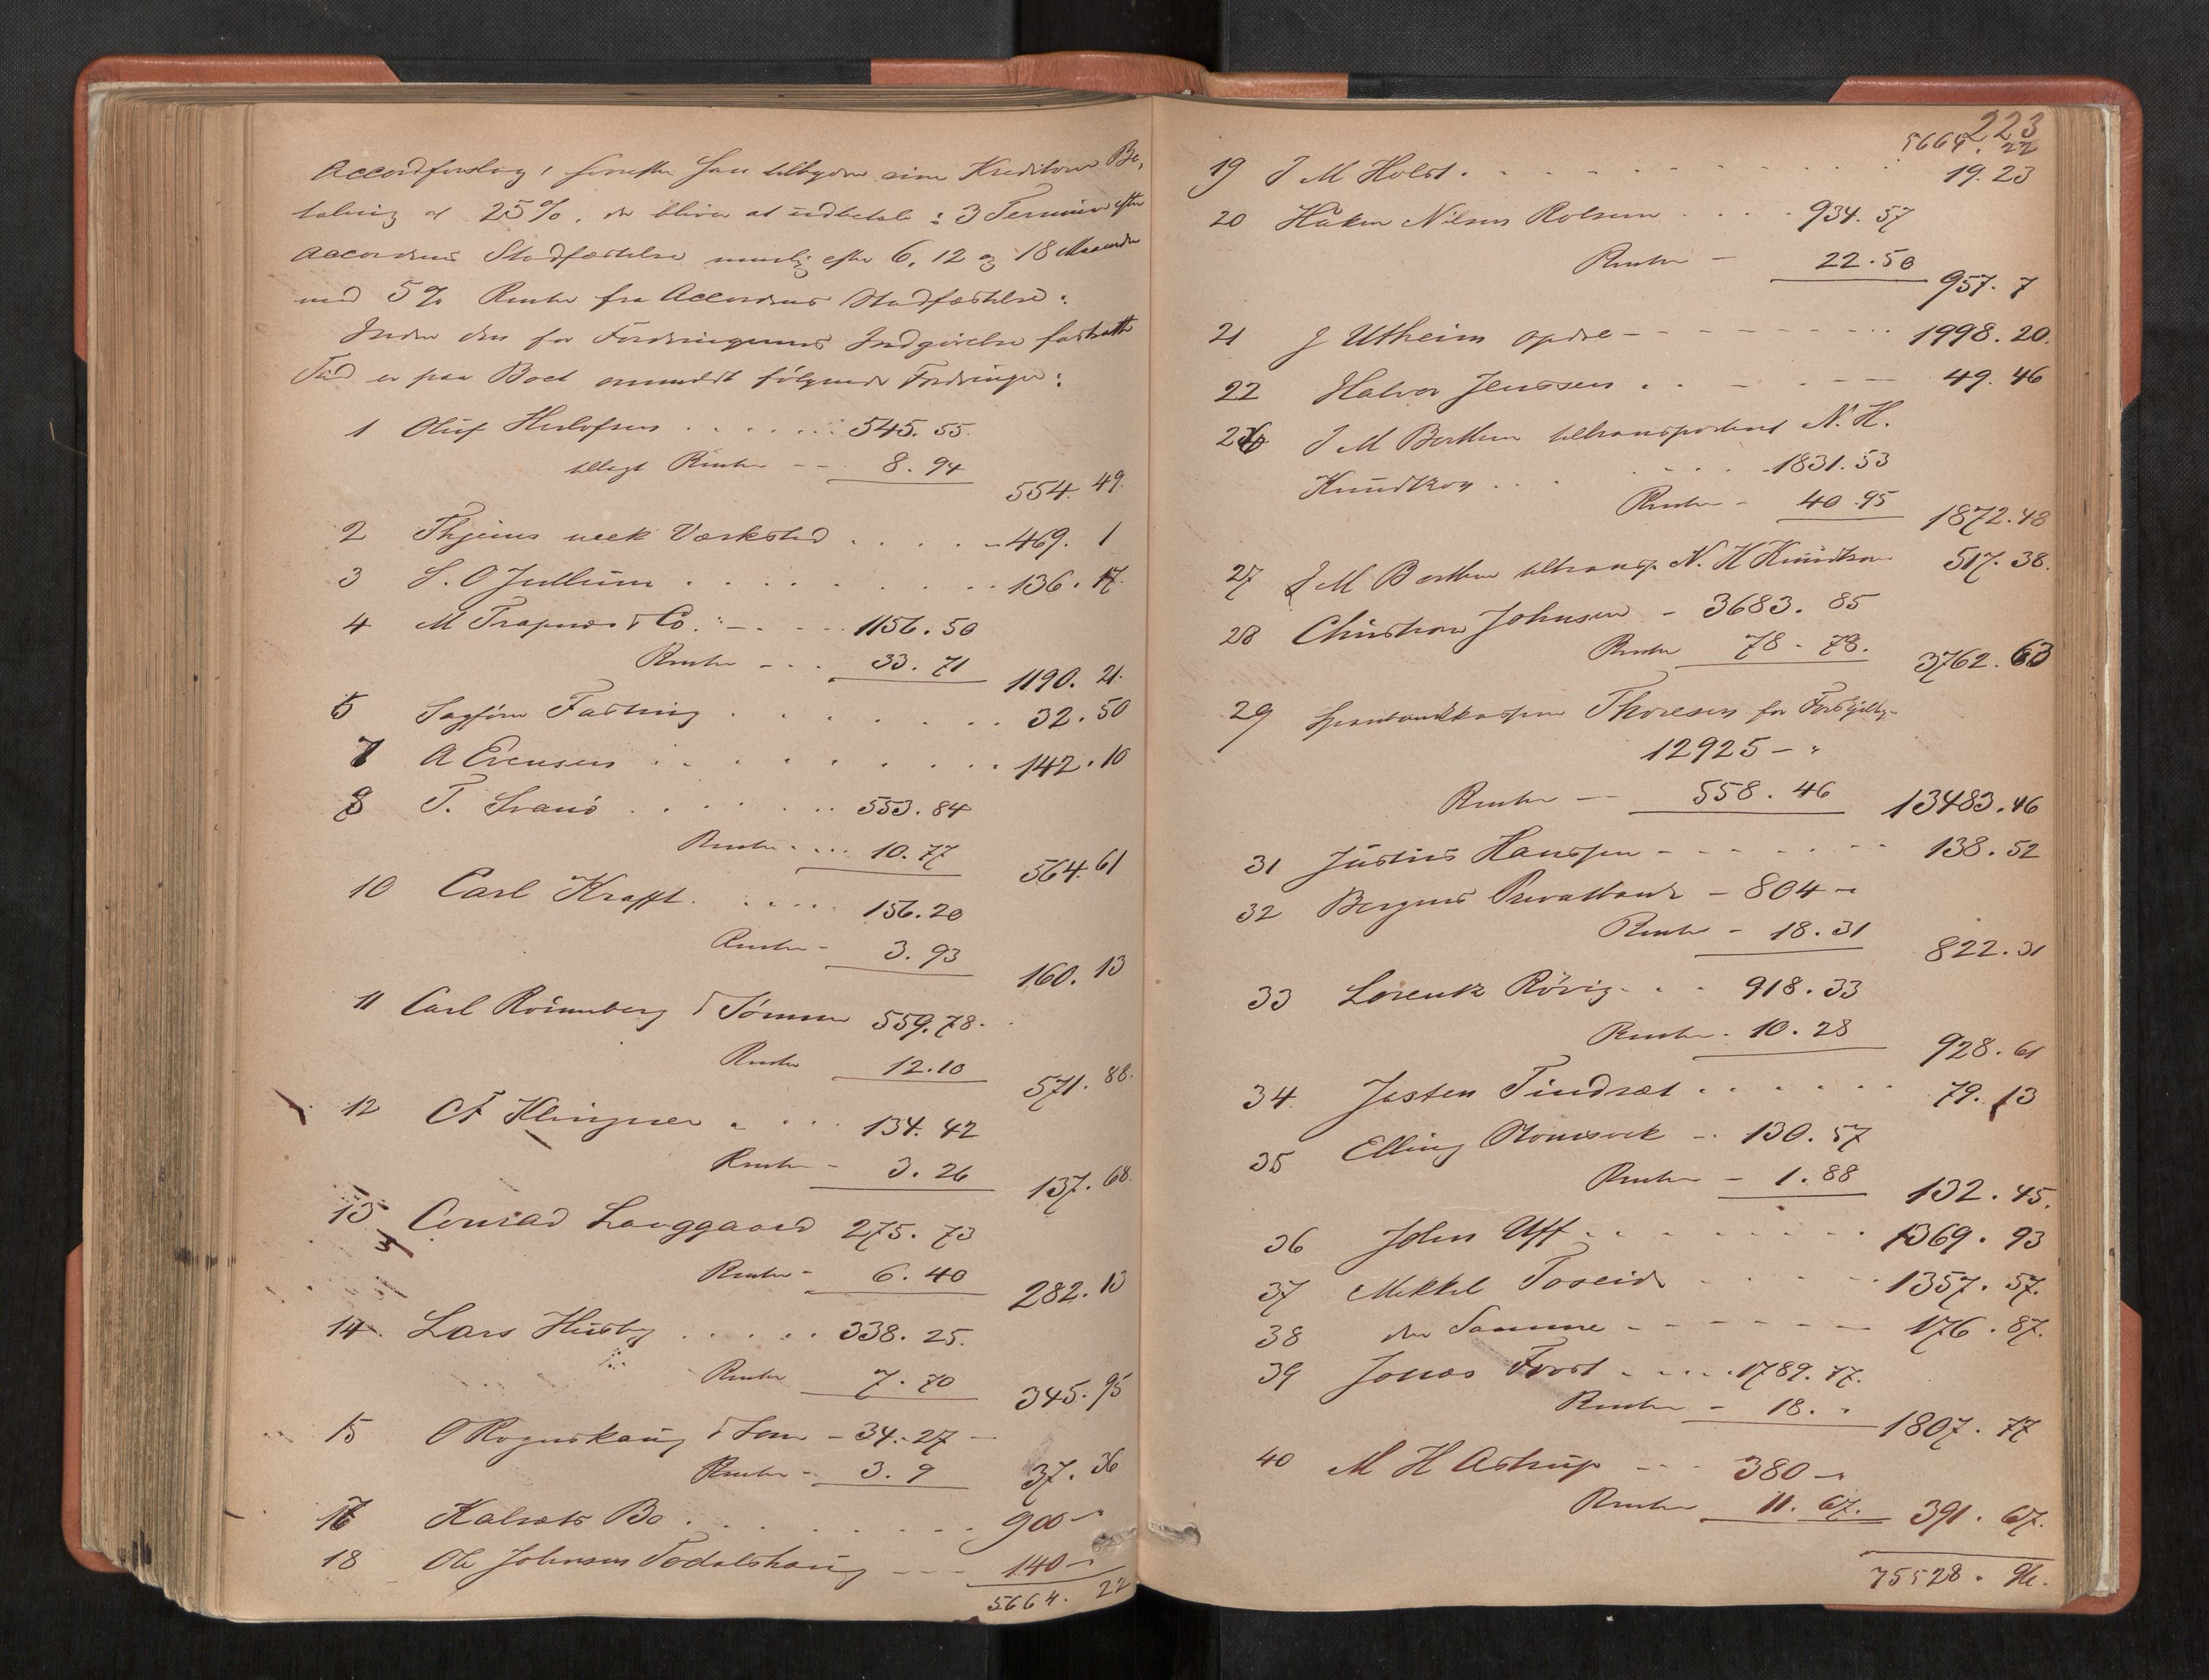 Accordforslag, hvorefter han tilbyder sine Kreditorer Be-
taling af 25%, der bliver at udbetale i 3 Terminer efter
Accordens Stadfæstelse nemlig efter 6, 12 og 18 Maaneder
med 5% Renter fra Accordens Stadfæstelse.
Inden den for Fordringernes Indgivelse fastsatte
Tid er paa Boet anmeldt følgende Fordringer:
1 Oluf Herlofsen . . . . . . 545. 55.
tillagt Renter -- 8. 94
554. 49.
2 Thjems mek Værksted . . . . 469. 1
3 S. O Jullum . . . . . . . . 136. 17.
4 M Trapnes & Co. - . - - 1156. 50
Renter - . . 33. 71
1190. 21.
5 Sagfører Fasting . . . . . . . 32. 50
7 A Evensen . . . . . . . . . 142. 10
8 T. Svanø . . . . . . 553. 84
Renter . ... 10. 77
564. 61
10 Carl Krafft . . . . . 156. 20
Renter - 3. 93
160. 13
11 Carl Rönneberg & Sønner 559. 78.
Renter 12. 10
571. 88.
12 CF Klingner . . . . 134. 42
Renter - 3. 26
137. 68.
13 Conrad Langgaard 275. 73
Renter - 6. 40
282. 13
14 Lars Husby . . . . . 338. 25.
Renter 7. 70
345. 95
15 O Rognskaug & Søn - 34. 27 -
Renter - 3. 9
37. 36
16 Kalvets Bo . . . . . . . . 900 - "
18 Ole Johnsen Todalshaug - - - 140 - "
5664. 22
223
5664. 22
19 J M Holst . . . . . . . . 19. 23
20 Håken Nilsen Rolsem . . . . 934. 57
Renter - 22. 50
957. 7
21 J Utheim opdre - - - - - - - 1998. 20.
22 Halvor Jenssen . . - . - - 49. 46
26 J M Berthen tiltransporteret N. H.
Knudtzon . . . . . . 1831. 53
Renter - 40. 95
1872. 48
27 J M Berthen tiltransp. N. H Knudtzon 517. 38.
28 Christian Johnsen - 3683. 85
Renter 78. 78.
3762. 63
29 Thoresen for
12925 - "
Renter -- 558. 46
13483. 46
31 Justus Hanssen - - - - - - - 138. 52
32 Bergens Privatbank - 804 - "
Renter - 18. 31
822. 31
33 Lorentz Rövig - . . 918. 33
Renter . 10. 28
928. 61
34 Josten Tindsæt . . . . . . 79. 13
35 Elling - . 130. 57
Renter - 1. 88
132. 45.
36 John Uff . . . . . . . . . 1369. 93
37 Mikkel Toseid - - - - - 1357. 57.
38 den Samme - - - - - - - 176. 87.
39 Jonas Frost - . . . . 1789. 77.
Renter - 18. "
1807. 77
40 M H Astrup - - - 380 - "
Renter 11. 67.
391. 67.
75528. 96.